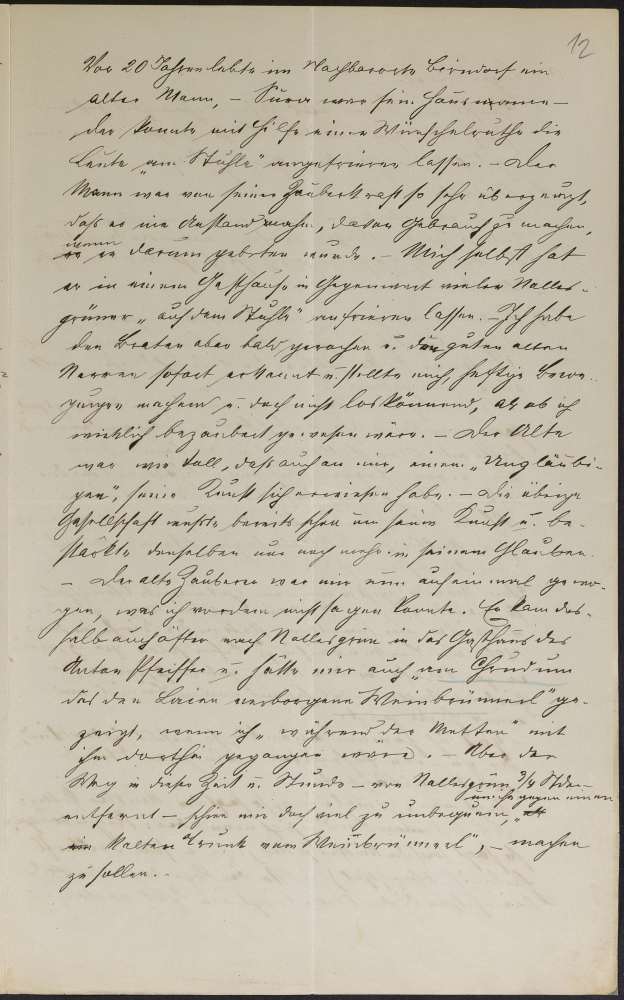 12
Vor 20 Jahren lebte im Nachbarorte Birndorf ein
alter Mann, – Sura war sein Hausname –
der konnte mit Hilfe einer Wünschelruthe die
Leute „am Stuhle" angefrieren lassen. – Der
Mann war von seiner Zauberkraft so sehr überzeugt,
daß er nie Anstand nahm, davon Gebrauch zu machen,
wenn er darum gebeten wurde. – Mich selbst hat
er in einem Gasthause in Gegenwart vieler Nalles-
grüner „auf dem Stuhle" anfrieren lassen. – Ich habe
den Braten aber bald gerochen u. den guten alten
Narren sofort erkannt u. stellte mich, heftige Bewe-
gungen machend u. doch nicht loskönnend, als ob ich
wirklich bezaubert gewesen wäre. – Der Alte
war wie toll, daß auch an mir, einem „Ungläubi-
gen", seine Kunst sich erwiesen habe. – Die übrige
Gesellschaft wußte bereits schon um seine Kunst u. be-
stärkte denselben nur noch mehr in seinem Glauben.
– Der alte Zauberer war mir nun auf einmal gewo-
gen, was ich vordem nicht sagen konnte. Er kam des-
halb auch öfter nach Nallesgrün in das Gasthaus des
Anton Pfeiffer u. hätte mir auch „am Chrudum
das den Laien verborgene Weinbrünnerl" ge-
zeigt, wenn ich „während der Metten" mit
ihm dorthin gegangen wäre. – Aber der
Weg in dieser Zeit u. Stunde – von Nallesgrün 3/4 Stden
entfernt – schien mir doch viel zu unbequem, um ihn gegen einen
kalten Trunk vom Weinbrünnerl", – machen
zu sollen. –